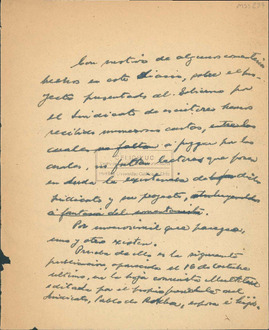 Con motivo de algunos comentarios
hechos en este diario, sobre el pro-
yecto presentado al Gobierno por
el Sindicato de escritores hemos
recibido numerosas cartas, entre las
cuales no faltan a juzgar por las
cartas, no faltan lectores que ponen
en duda la existencia del
Sindicato y su proyecto,
a fantasía del
Por inverosímil que parezca,
uno y otro existen.
Prueba de ello es la siguiente
publicación, aparecida el 16 de octubre
último, en la hoja comunista
editada por el propio presidente del
Sindicato, Pablo de Rokha,